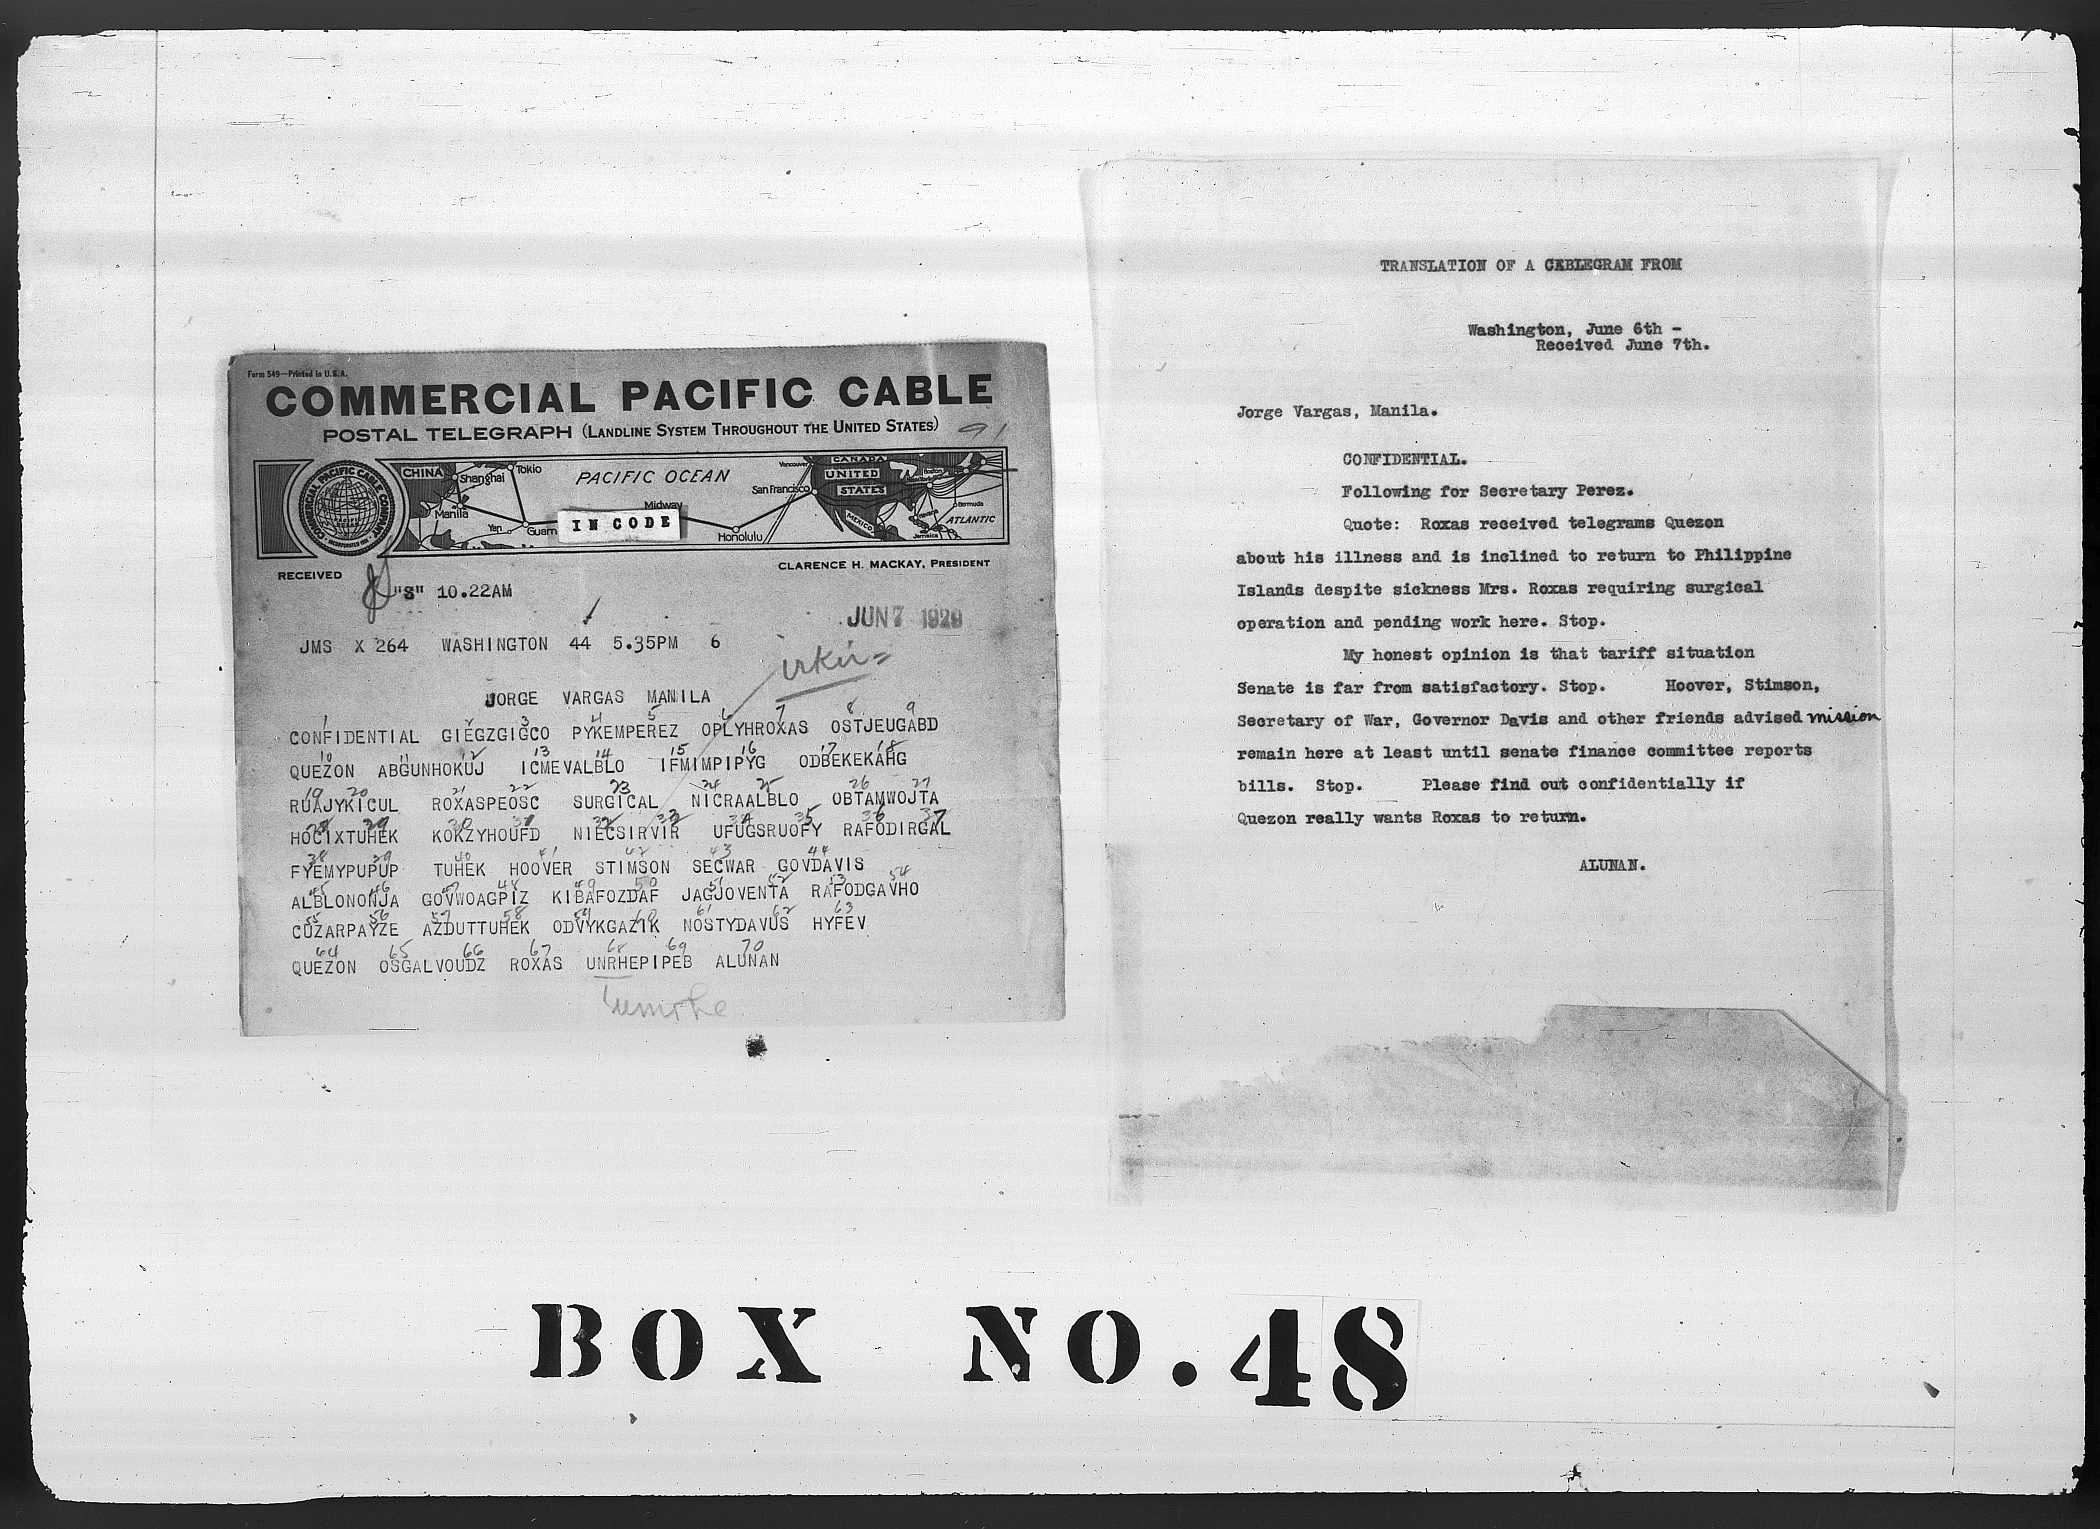 Form 549—Printed in U.S.A.
COMMERCIAL PACIFIC CABLE
POSTAL TELEGRAPH (LANDLINE SYSTEM THROUGHOUT THE UNITED STATES)
91
COMMERCIAL PACIFIC CABLE COMPANY
INCORPORATED 1901
CHINA
Shanghai
Tokio
Manila
Yap
Guam
PACIFIC OCEAN
Midway
Honolulu
San Francisco
Vancouver
CANADA
UNITED
STATES
MEXICO
Boston
Bermuda
ATLANTIC
Jamaica
IN CODE
RECEIVED
CLARENCE H. MACKAY, PRESIDENT
"S" 10.22AM
JUN 7 1929
JMS X 264 WASHINGTON 44 5.35PM 6
JORGE VARGAS MANILA
1 2 3 4 5 6 7 8 9
CONFIDENTIAL GIEGZGIGCO PYKEMPEREZ OPLYHROXAS OSTJEUGABD
10 11 12 13 14 15 16 17 18
QUEZON ABGUNHOKUJ ICMEVALBLO IFMIMPIPYG ODBEKEKAHG
19 20 21 22 23 24 25 26 27
RUAJYKICUL ROXASPEOSC SURGICAL NICRAALBLO OBTAMWOJTA
28 29 30 31 32 33 34 35 36 37
HOCIXTUHEK KOKZYHOUFD NIECSIRVIR UFUGSRUOFY RAFODIRGAL
38 39 40 41 42 43 44
FYEMYPUPUP TUHEK HOOVER STIMSON SECWAR GOVDAVIS
45 46 47 48 49 50 51 52 53 54
ALBLONONJA GOVWOAGPIZ KIBAFOZDAF JAGJOVENTA RAFODGAVHO
55 56 57 58 59 60 61 62 63
CUZARPAYZE AZDUTTUHEK ODVYKGAZIK NOSTYDAVUS HYFEV
64 65 66 67 68 69 70
QUEZON OSGALVOUDZ ROXAS UNRHEPIPEB ALUNAN
TRANSLATION OF A CABLEGRAM FROM
Washington, June 6th -
Received June 7th.
Jorge Vargas, Manila.
CONFIDENTIAL.
Following for Secretary Perez.
Quote: Roxas received telegrams Quezon
about his illness and is inclined to return to Philippine
Islands despite sickness Mrs. Roxas requiring surgical
operation and pending work here. Stop.
My honest opinion is that tariff situation
Senate is far from satisfactory. Stop. Hoover, Stimson,
Secretary of War, Governor Davis and other friends advised mission
remain here at least until senate finance committee reports
bills. Stop. Please find out confidentially if
Quezon really wants Roxas to return.
ALUNAN.
BOX NO. 48